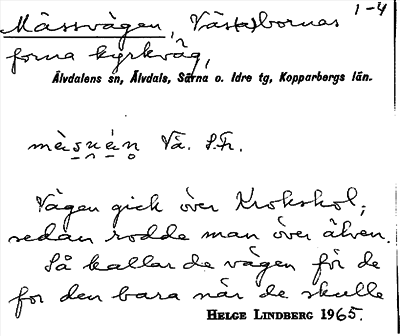 1-4
Mässvägen, Väs(a)bornas
forna kyrkväg,
Älvdalens sn, Älvdals, Särna o. Idre tg, Kopparbergs län.
Vä. S.Fr.
Vägen gick över Krokskol,
sedan rodde man över älven.
Så kallar de vägen för de
for den bara när de skulle
HELGE LINDBERG 1965.